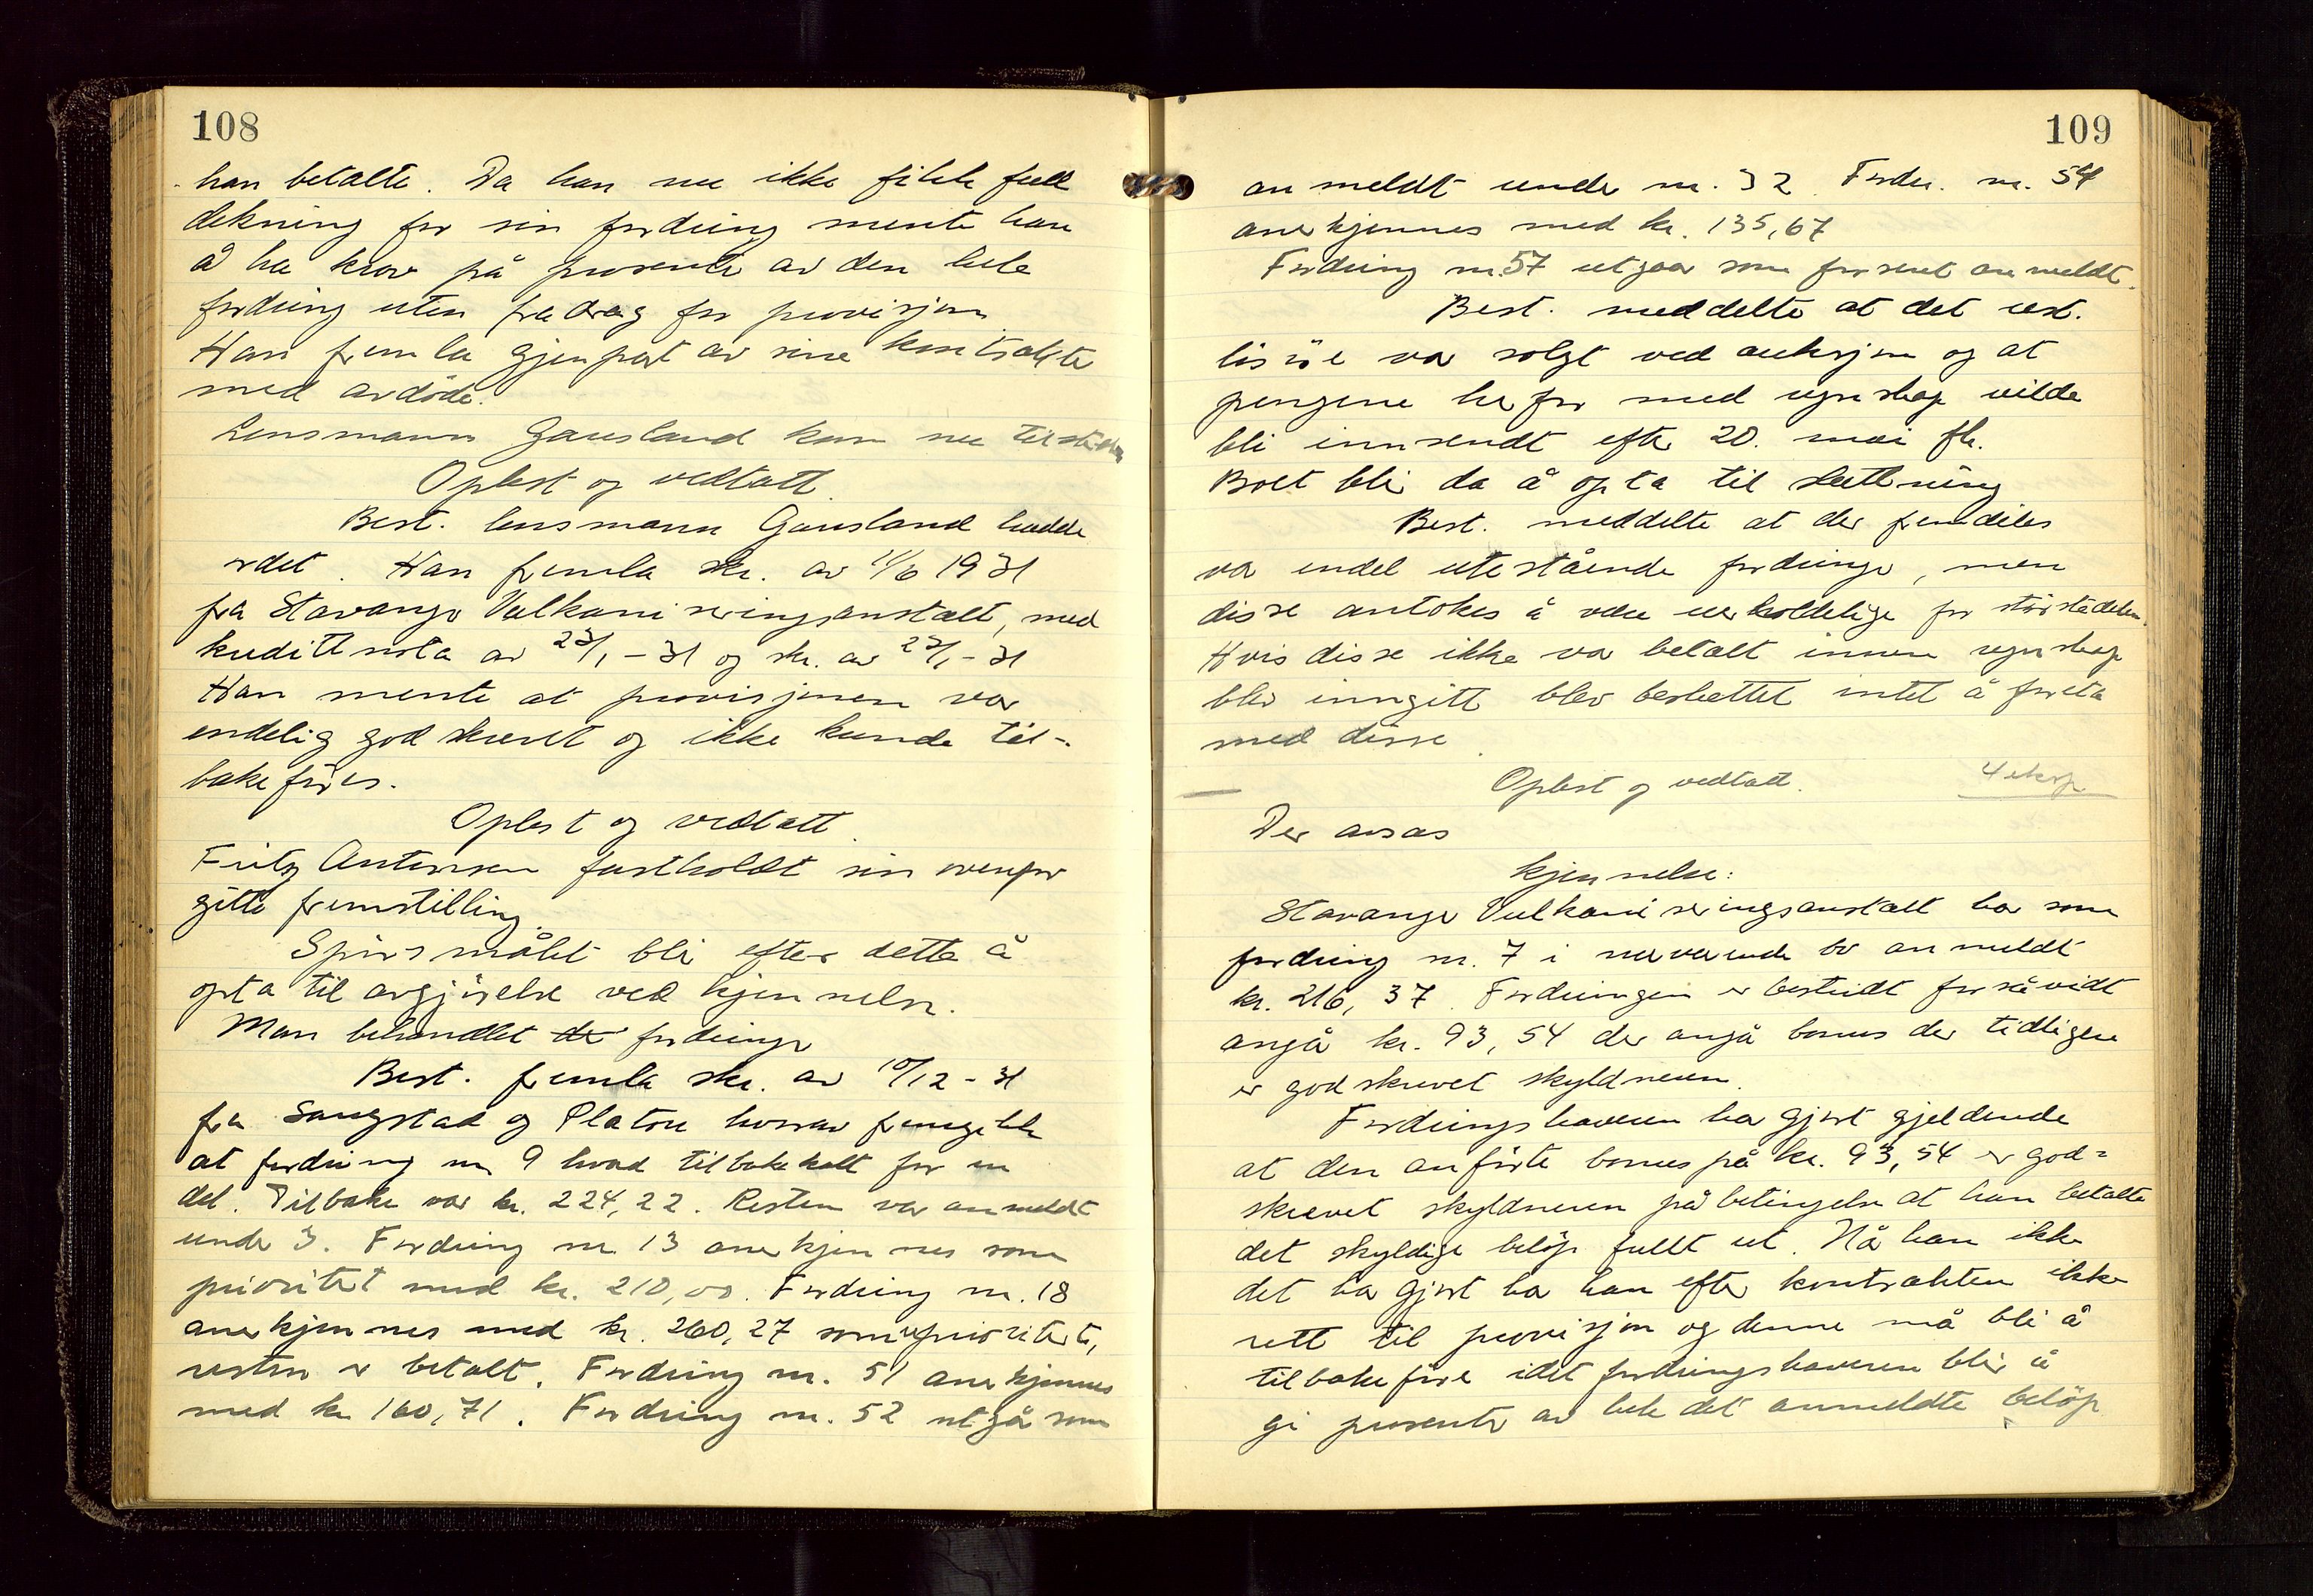 108
han betalte. Da han nu ikke fikk full
dekning for sin fordring mente han
å ha krav på prosenter av den hele
fordring uten fradrag for provisjon
Han fremla gjenpart av sine kontrakter
med avdöde.
Lensmann Gausland kom nu tilstede
Oplest og vedtatt.
Best. lensmann Gausland hadde
ordet. Han fremla skr. av 11/6 1931
fra Stavanger Vulkaniseringsanstalt, med
kreditt nota av 23/1-31 og skr. av 23/1-31
Han mente at provisjonen var
endelig godskrevet og ikke kunde til-
bakeföres.
Oplest og vedtatt.
Fritz Antonsen fastholdt sin ovenfor
gitte fremstilling.
Spörsmålet blir efter dette å
opta til avgjörelse ved kjennelse.
Man behandlet de fordringer
Best. fremla skr. av 10/12-31
fra Sangstad og Platou hvorav fremgikk
at fordring nr 9 hvad tilbakekalt for en
del. Tilbake var kr. 224,22. Resten var anmeldt
under 3. Fordring nr. 13 anerkjennes som
prioritert med kr. 210,00. Fordring nr. 18
anerkjennes med kr. 260,27 som uprioritert,
resten er betalt. Fordring nr. 51 anerkjennes
med kr 160,71. Fordring nr. 52 utgår som
109
anmeldt under nr. 32 Fordr. nr. 54
anerkjennes med kr. 135,67
Fordring nr. 57 utgaar som for sent anmeldt.
Best. meddelte at det rest.
lösöre var solgt ved auksjon og at
pengene herfor med regnskap vilde
bli innsendt efter 20. mai fk.
Boet blir da å opta til slutning
Best. meddelte at der fremdeles
var endel utestående fordringer, men
disse antokes å være uerholdelige for störstedelen.
Hvis disse ikke var betalt innen regnskap
blev inngitt blev besluttet intet å foreta
med disse.
Oplest og vedtatt.
4 eksp
Der avsas
kjennelse:
Stavanger Vulkaniseringsanstalt har som
fordring nr. 7 i nærværende bo anmeldt
kr. 216,37. Fordringen er bestridt forsåvidt
angår kr. 93,54 der angår bonus der tidligere
er godskrevet skyldneren.
Fordringshaveren har gjort gjeldende
at den anförte bonus på kr. 93,54 er god=
skrevet skyldneren på betingelse at han betalte
det skyldige belöp fullt ut. Når han ikke
det har gjort har han efter kontrakten ikke
rett til provisjon og denne må bli å
tilbakeföre idet fordringshaveren blir å
gi prosenter av hele det anmeldte belöp